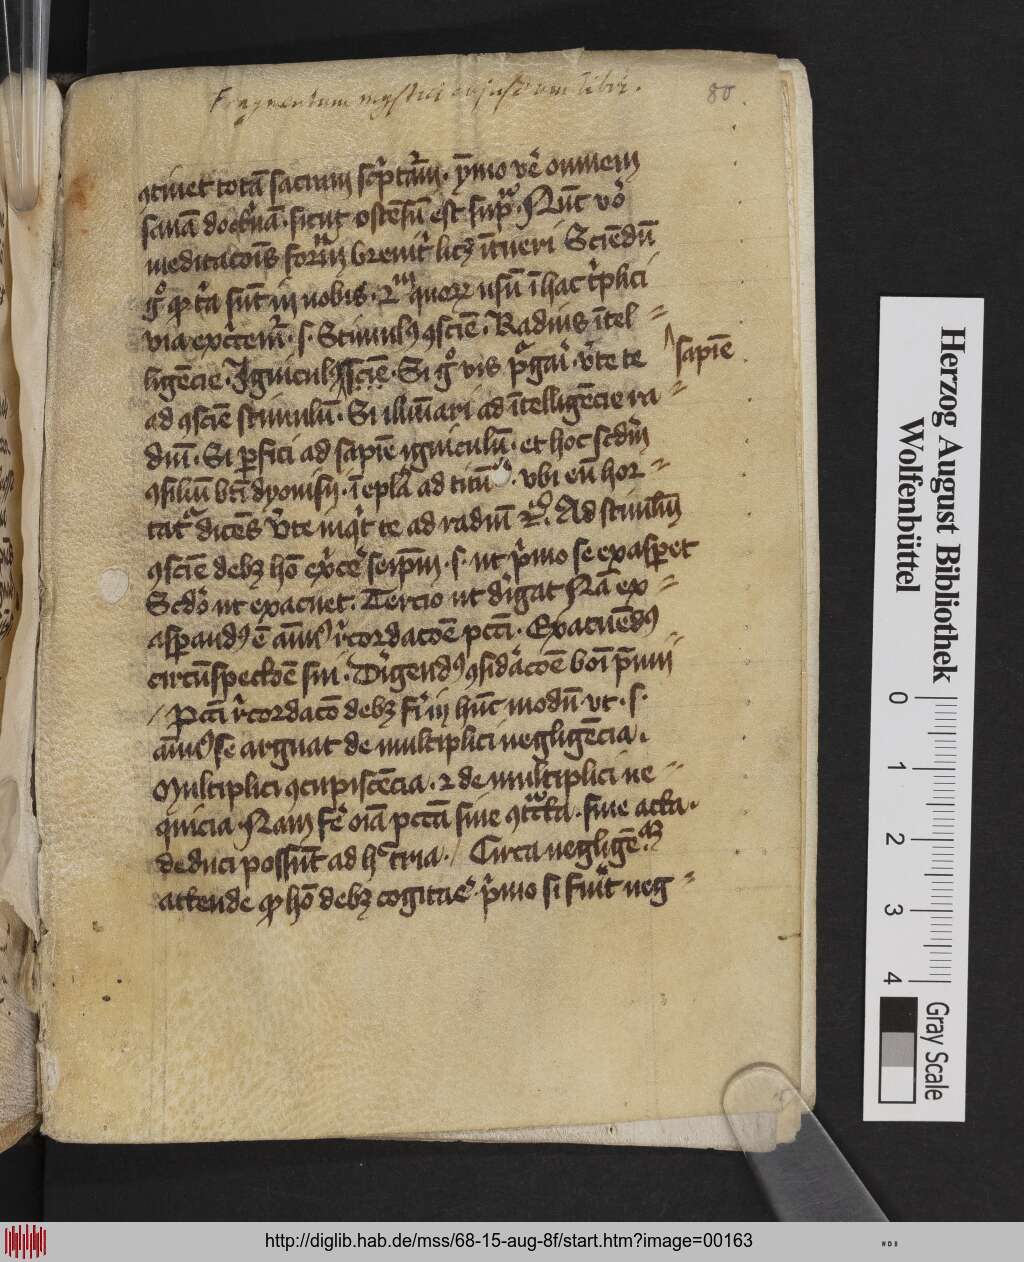 Fragmentum mystici cujusdam libri.
80
ꝯtinet totā sacram scͥptāͬm. ymo vͤ omnem
sanā doctͥnā. sicut ostēsū est supͣ. Nūc vͦ
meditacōis formͣ breuitͥ licꝫ ītueri Sciēdū
gͦ qꝫ tͥa sūt in nobis. ꝛ m quorꝝ usū ī hac tͥplici
via exͨtemͬ. s. Stimulꝰ ꝯsciē. Radius ītel
ligēcie. Igniculꝰ sciē. Si gͦ vis pͬgaͥ. vͥte te
sapiē
ad ꝯsciē stimulū. Si illūiari ad ītelligēcie ra
diū. Si ꝑfici ad sapiē igniculū. et hoc scdm̄
ꝯsiliū bt̄i dyonisij. ī epla ad titū. vbi eū hor
tatͬ dicēs vͥte inqͥt te ad radiū ꝛc̄. Ad stimlū
ꝯsciē debꝫ hō exͨcͤ seip̄m. s. ut pͥmo se exasꝑet
Scdͦ ut exacuet. Tercio ut dͥigat Nā ex
asꝑandꝰ ē aīmꝰ rͤcordacōe pccī. Exacuēdꝰ
circūspectōe sui. Dͥigendꝰ ꝯsidͤacōe boī pͥmi
Pccī rͤcordacō debꝫ fiͤi in hūc modū ut. s.
aīmꝰ se arguat de multiplici negligēcia.
Multiplici ꝯcupiscēcia. ꝛ de multiplici ne
quicia. Nam feͤ oīa pccā siue ꝯtͣcta. siue acta.
deduci possūt ad hͨ tria. Circa negligē. aꝫ
attende qꝫ hō debꝫ cogitaͤ. pͥmo si fuīt neg
Herzog August Bibliothek
Wolfenbüttel
0 1 2 3 4
Gray Scale
http://diglib.hab.de/mss/68-15-aug-8f/start.htm?image=00163
WDB